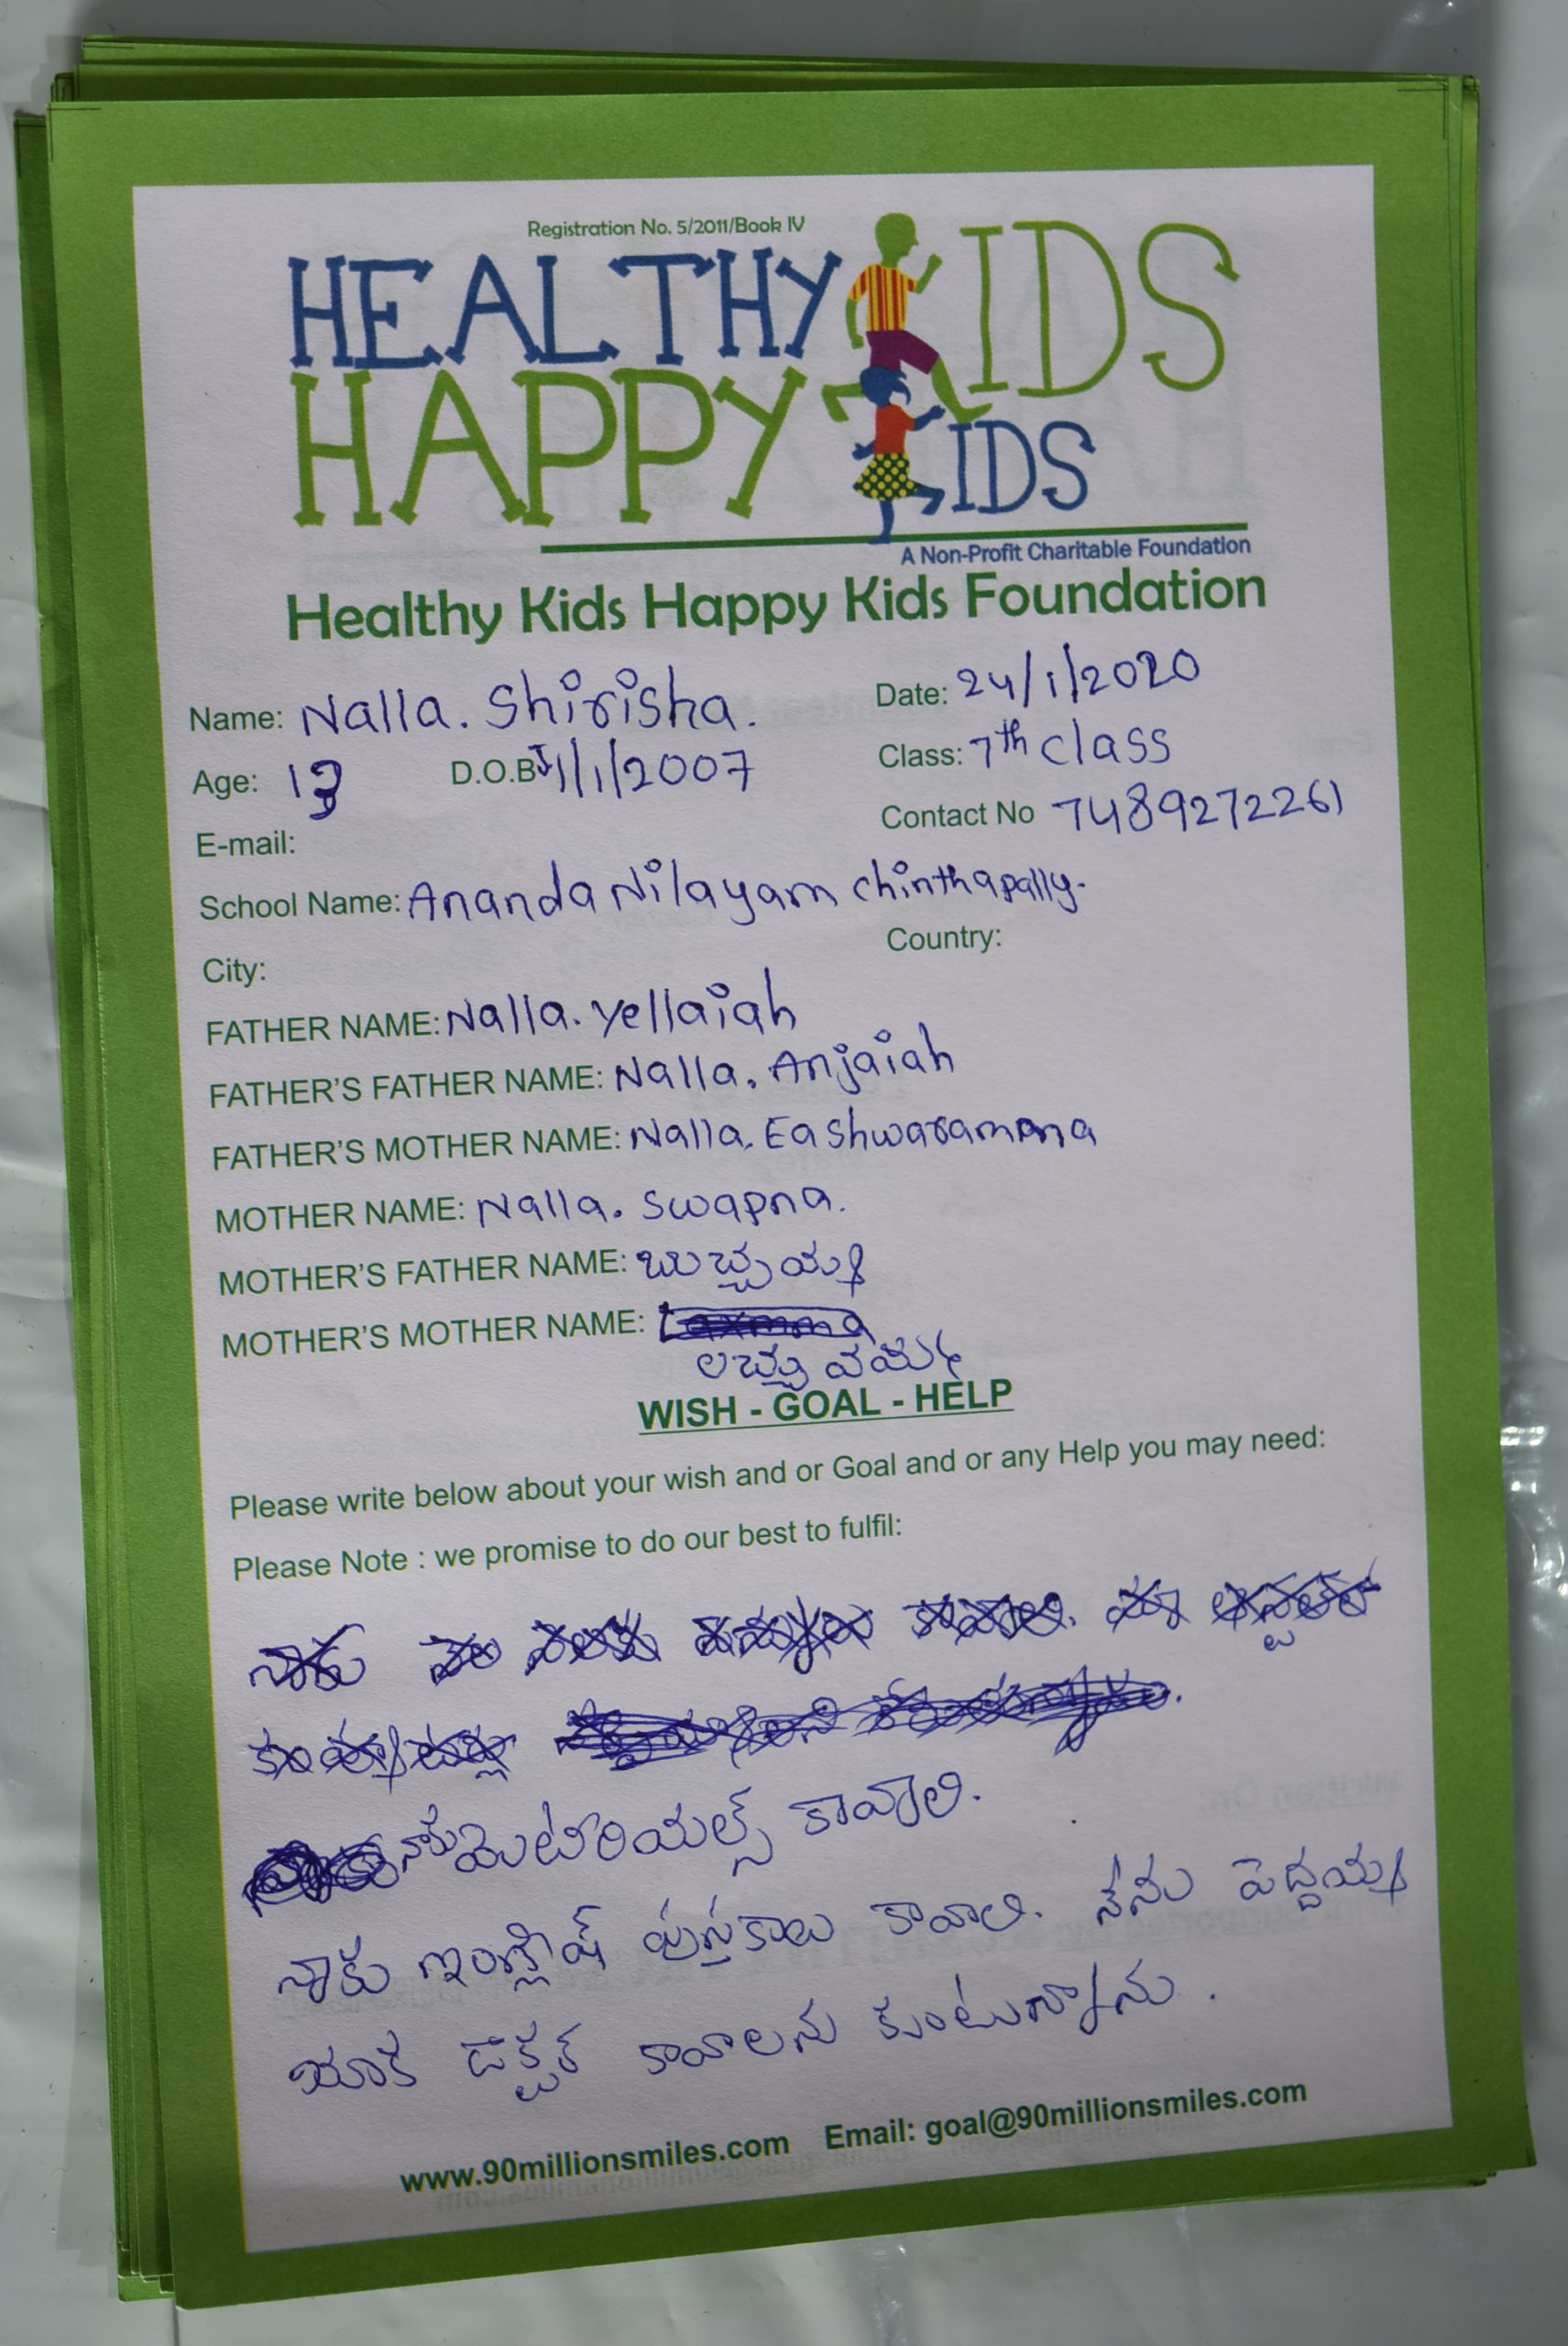 Registration No. 5/2011/Book IV
HEALTHY KIDS
HAPPY KIDS
A Non-Profit Charitable Foundation
Healthy Kids Happy Kids Foundation
Name: Nalla. Shirisha. Date: 24/1/2020
Age: 13 D.O.B 1/1/2007 Class: 7th class
E-mail: Contact No 7489272261
School Name: Ananda Nilayam chinthapally.
City: Country:
FATHER NAME: Nalla. Yellaiah
FATHER'S FATHER NAME: Nalla. Anjaiah
FATHER'S MOTHER NAME: Nalla. Eashwaramma
MOTHER NAME: Nalla. Swapna.
MOTHER'S FATHER NAME: బుచ్చయ్య
MOTHER'S MOTHER NAME:
లచ్చువమ్మ
WISH - GOAL - HELP
Please write below about your wish and or Goal and or any Help you may need:
Please Note : we promise to do our best to fulfil:
నాకు మెటీరియల్స్ కావాలి.
నాకు ఇంగ్లీష్ పుస్తకాలు కావాలి. నేను పెద్దయ్య
యాక డాక్టర్ కావాలను కుంటున్నాను.
www.90millionsmiles.com Email: goal@90millionsmiles.com